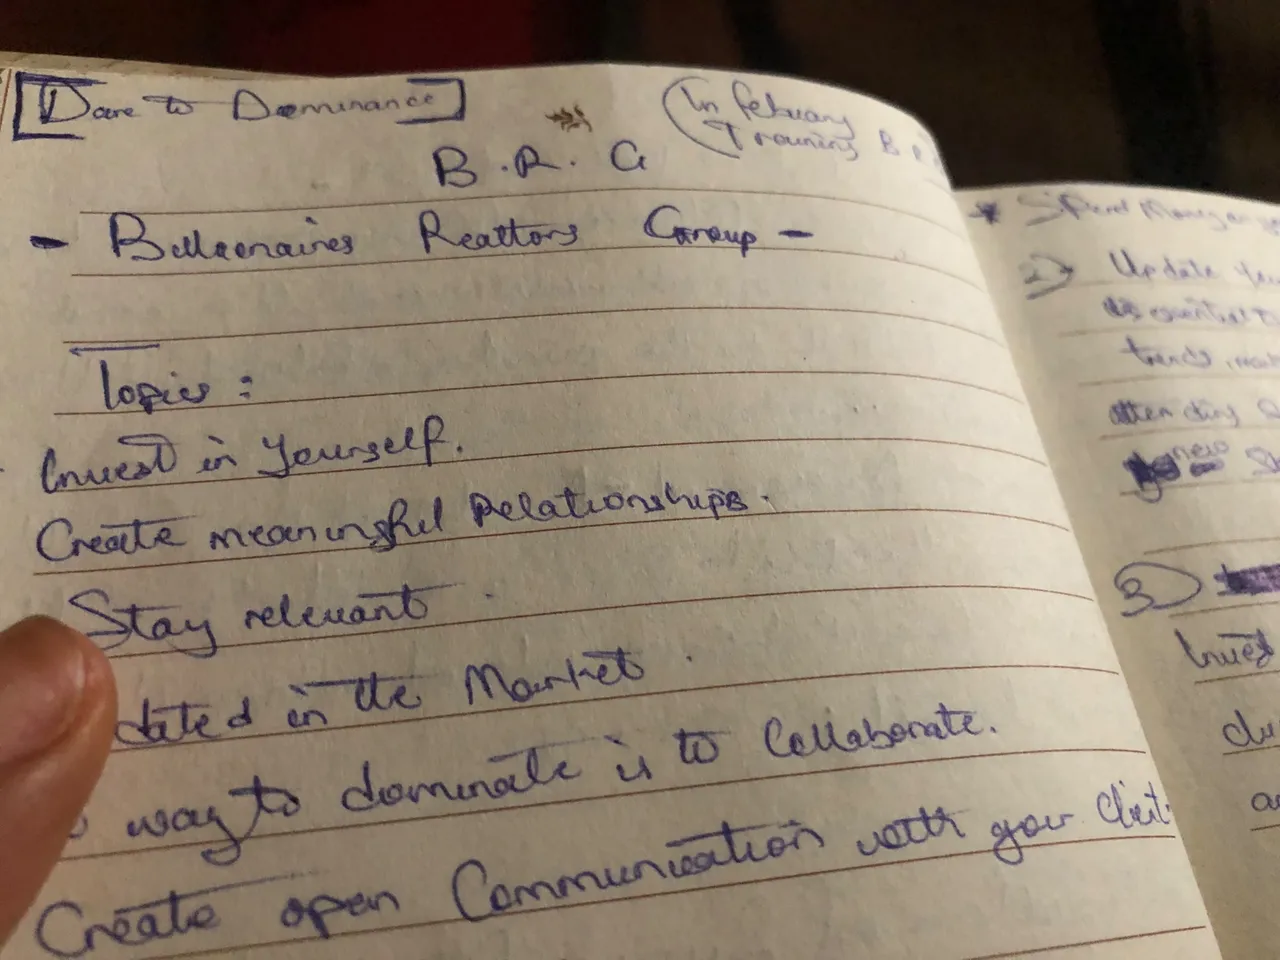 Dare to Dominance
In February
Training B R
B.R.G
- Billionaires Realtors Group -
Topics:
Invest in Yourself.
Create meaningful Relationships.
Stay relevant.
dated in the Market.
way to dominate is to Collaborate.
Create open Communication with your Client
* Spend Money on
2) Update You
is essential to
trends,
attending
new
3)
Invest